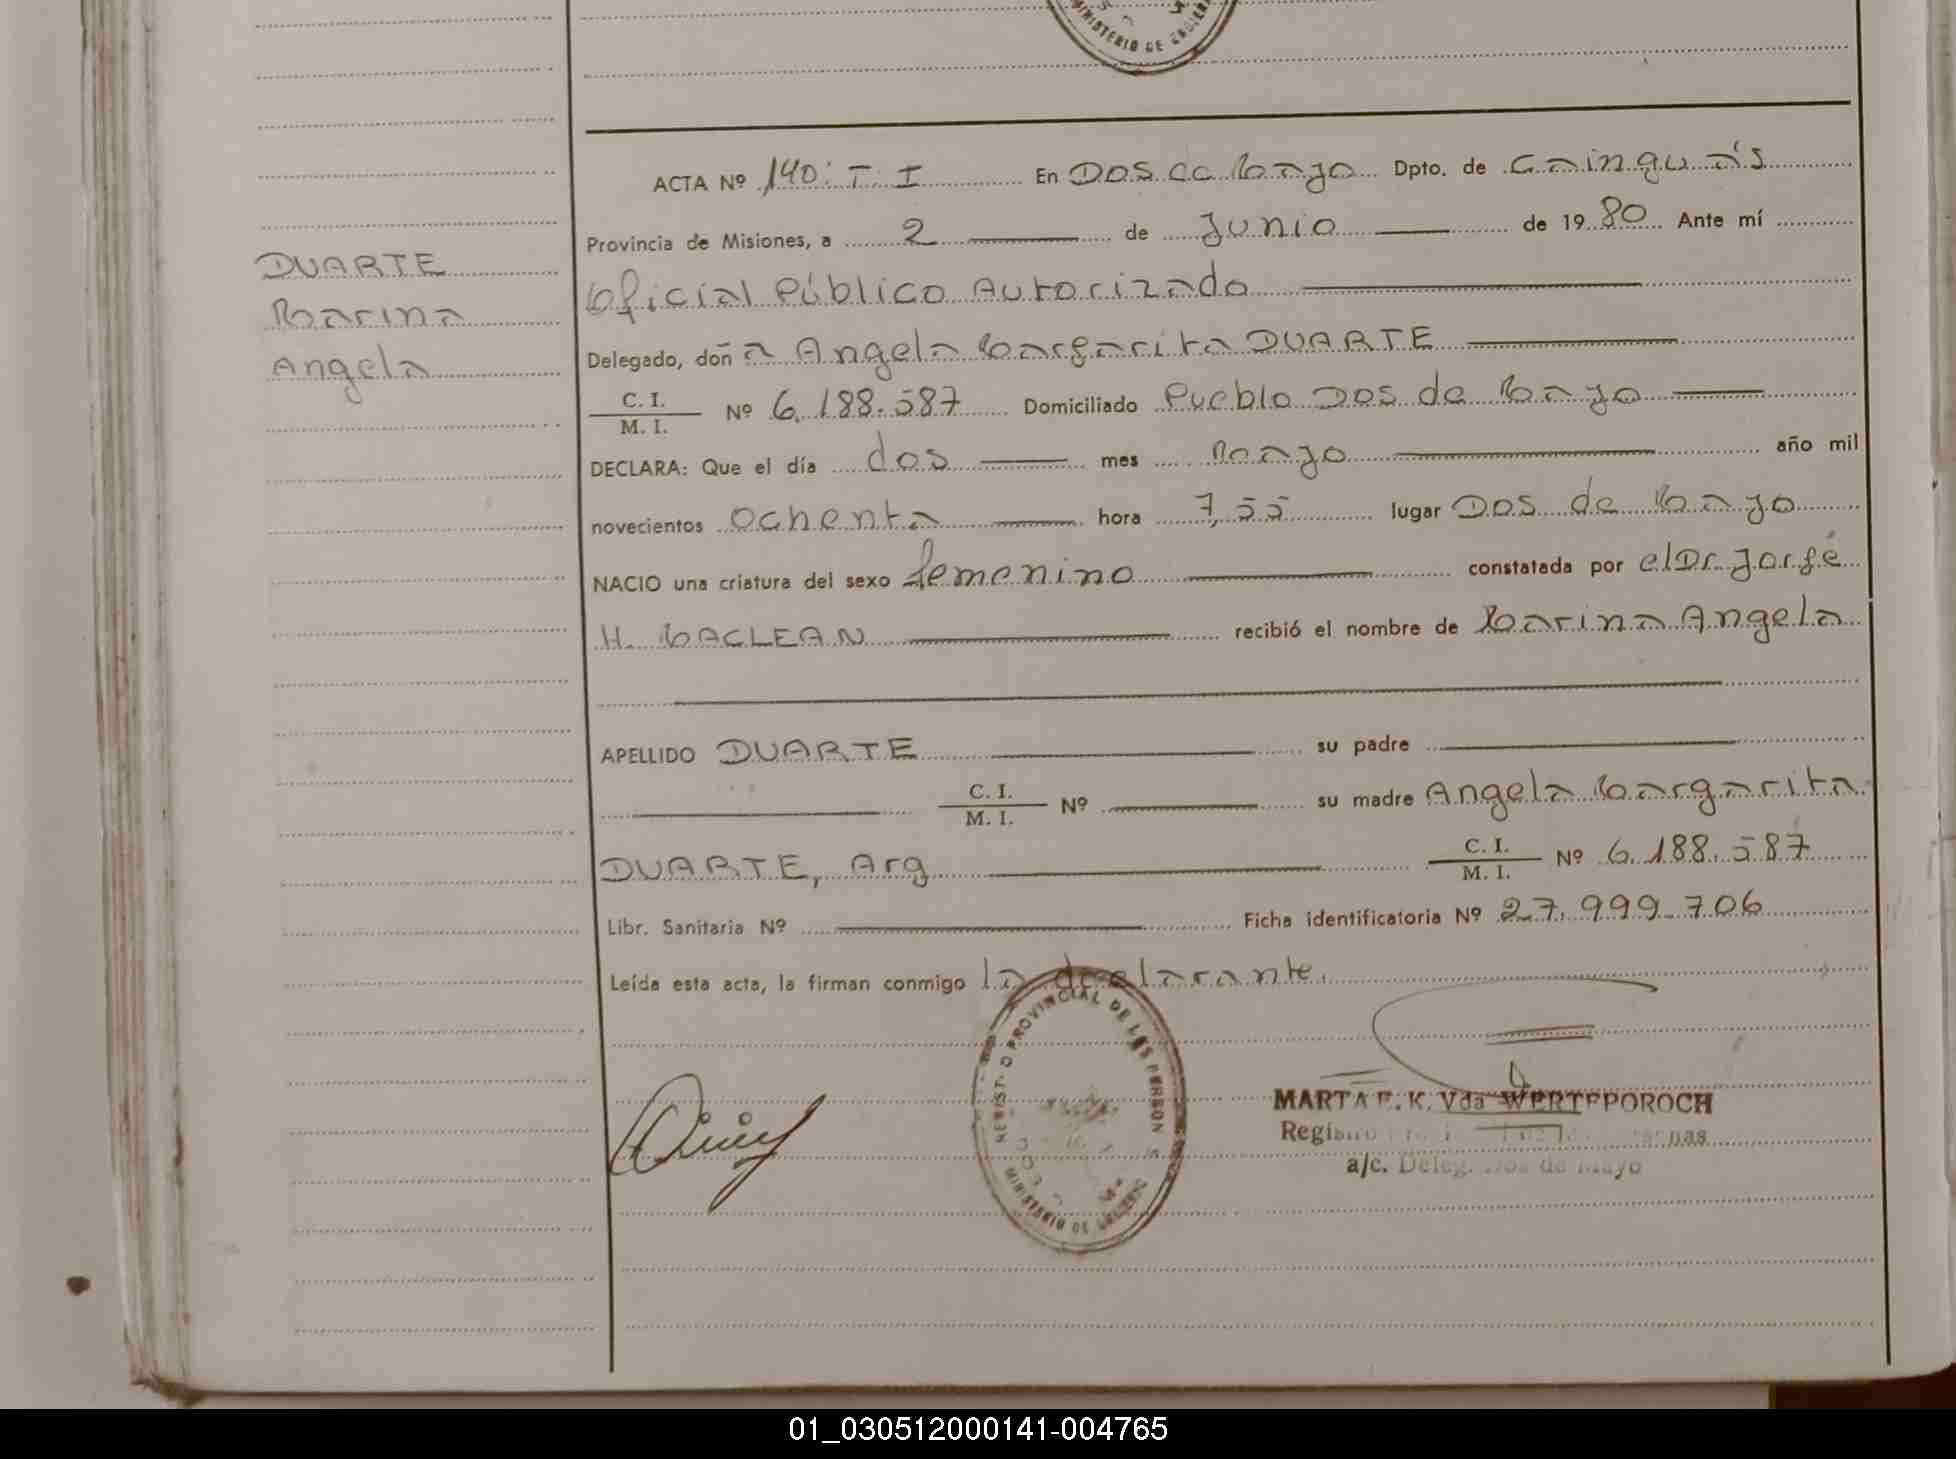 MINISTERIO DE GOBIERNO
ACTA Nº 140: T: I En DOS de Mayo Dpto. de Cainguás
Provincia de Misiones, a 2 de Junio de 1980 Ante mí
DUARTE
Marina
Angela
Oficial Público Autorizado
Delegado, doña Angela Margarita DUARTE
C. I.
M. I. Nº 6.188.587 Domiciliado Pueblo Dos de Mayo
DECLARA: Que el día dos mes Mayo año mil
novecientos ochenta hora 7,55 lugar Dos de Mayo
NACIO una criatura del sexo femenino constatada por el Dr. Jorge
H. MACLEAN recibió el nombre de Marina Angela
APELLIDO DUARTE su padre
C. I.
M. I. Nº su madre Angela Margarita
DUARTE, Arg C. I.
M. I. Nº 6.188.587
Libr. Sanitaria Nº Ficha identificatoria Nº 27.999.706
Leída esta acta, la firman conmigo la declarante.
PROVINCIAL DE LAS PERSON
MINISTERIO DE GOBIERNO
MARTA E. K. Vda WERTEPOROCH
a/c. Deleg. Dos de Mayo
01_030512000141-004765